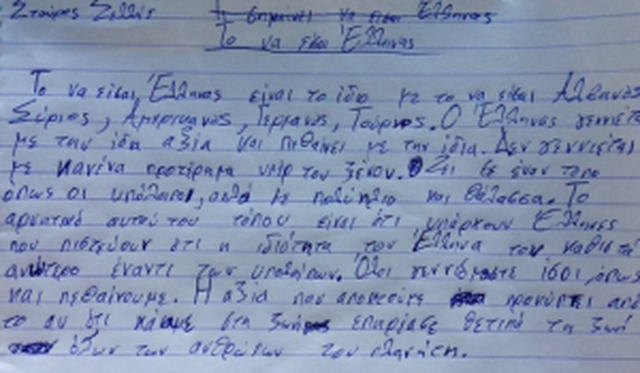 Σταύρος Ζ
Τι σημαίνει να είσαι Έλληνας
Το να είσαι Έλληνας
Το να είσαι Έλληνας είναι το ίδιο με το να είσαι Αλβανός
Σύριος, Αμερικανός, Γερμανός, Τούρκος. Ο Έλληνας γεννιέται
με την ίδια αξία και πεθαίνει με την ίδια. Δεν γεννιέται
με κανένα προτέρημα υπέρ του ξένου. Ζει σε έναν τόπο
όπως οι υπόλοιποι, αλλά με ήλιο και θάλασσα. Το
αρνητικό αυτού του τόπου είναι ότι υπάρχουν Έλληνες
που πιστεύουν ότι η ιδιότητα του Έλληνα τον καθιστά
ανώτερο έναντι των υπολοίπων. Όλοι γεννιόμαστε ίσοι, όπως
και πεθαίνουμε. Η αξία που αποκτούμε προκύπτει από
το αν ότι κάναμε στη ζωή επηρέασε θετικά τη ζωή
όλων των ανθρώπων του πλανήτη.